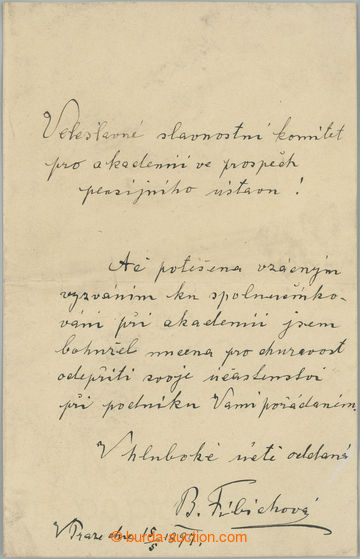 Veleslavné slavnostní komitét
pro akademii ve prospěch
pensijního ústavu!
Ač potěšena vzácným
vyzváním ku spoluúčinko-
vání při akademii jsem
bohužel nucena pro churavost
odepříti svoje účastenství
při podniku Vámi pořádaném.
V hluboké úctě oddaná
B. Fibichová
V Praze dne 15/5
©burda-auction.com